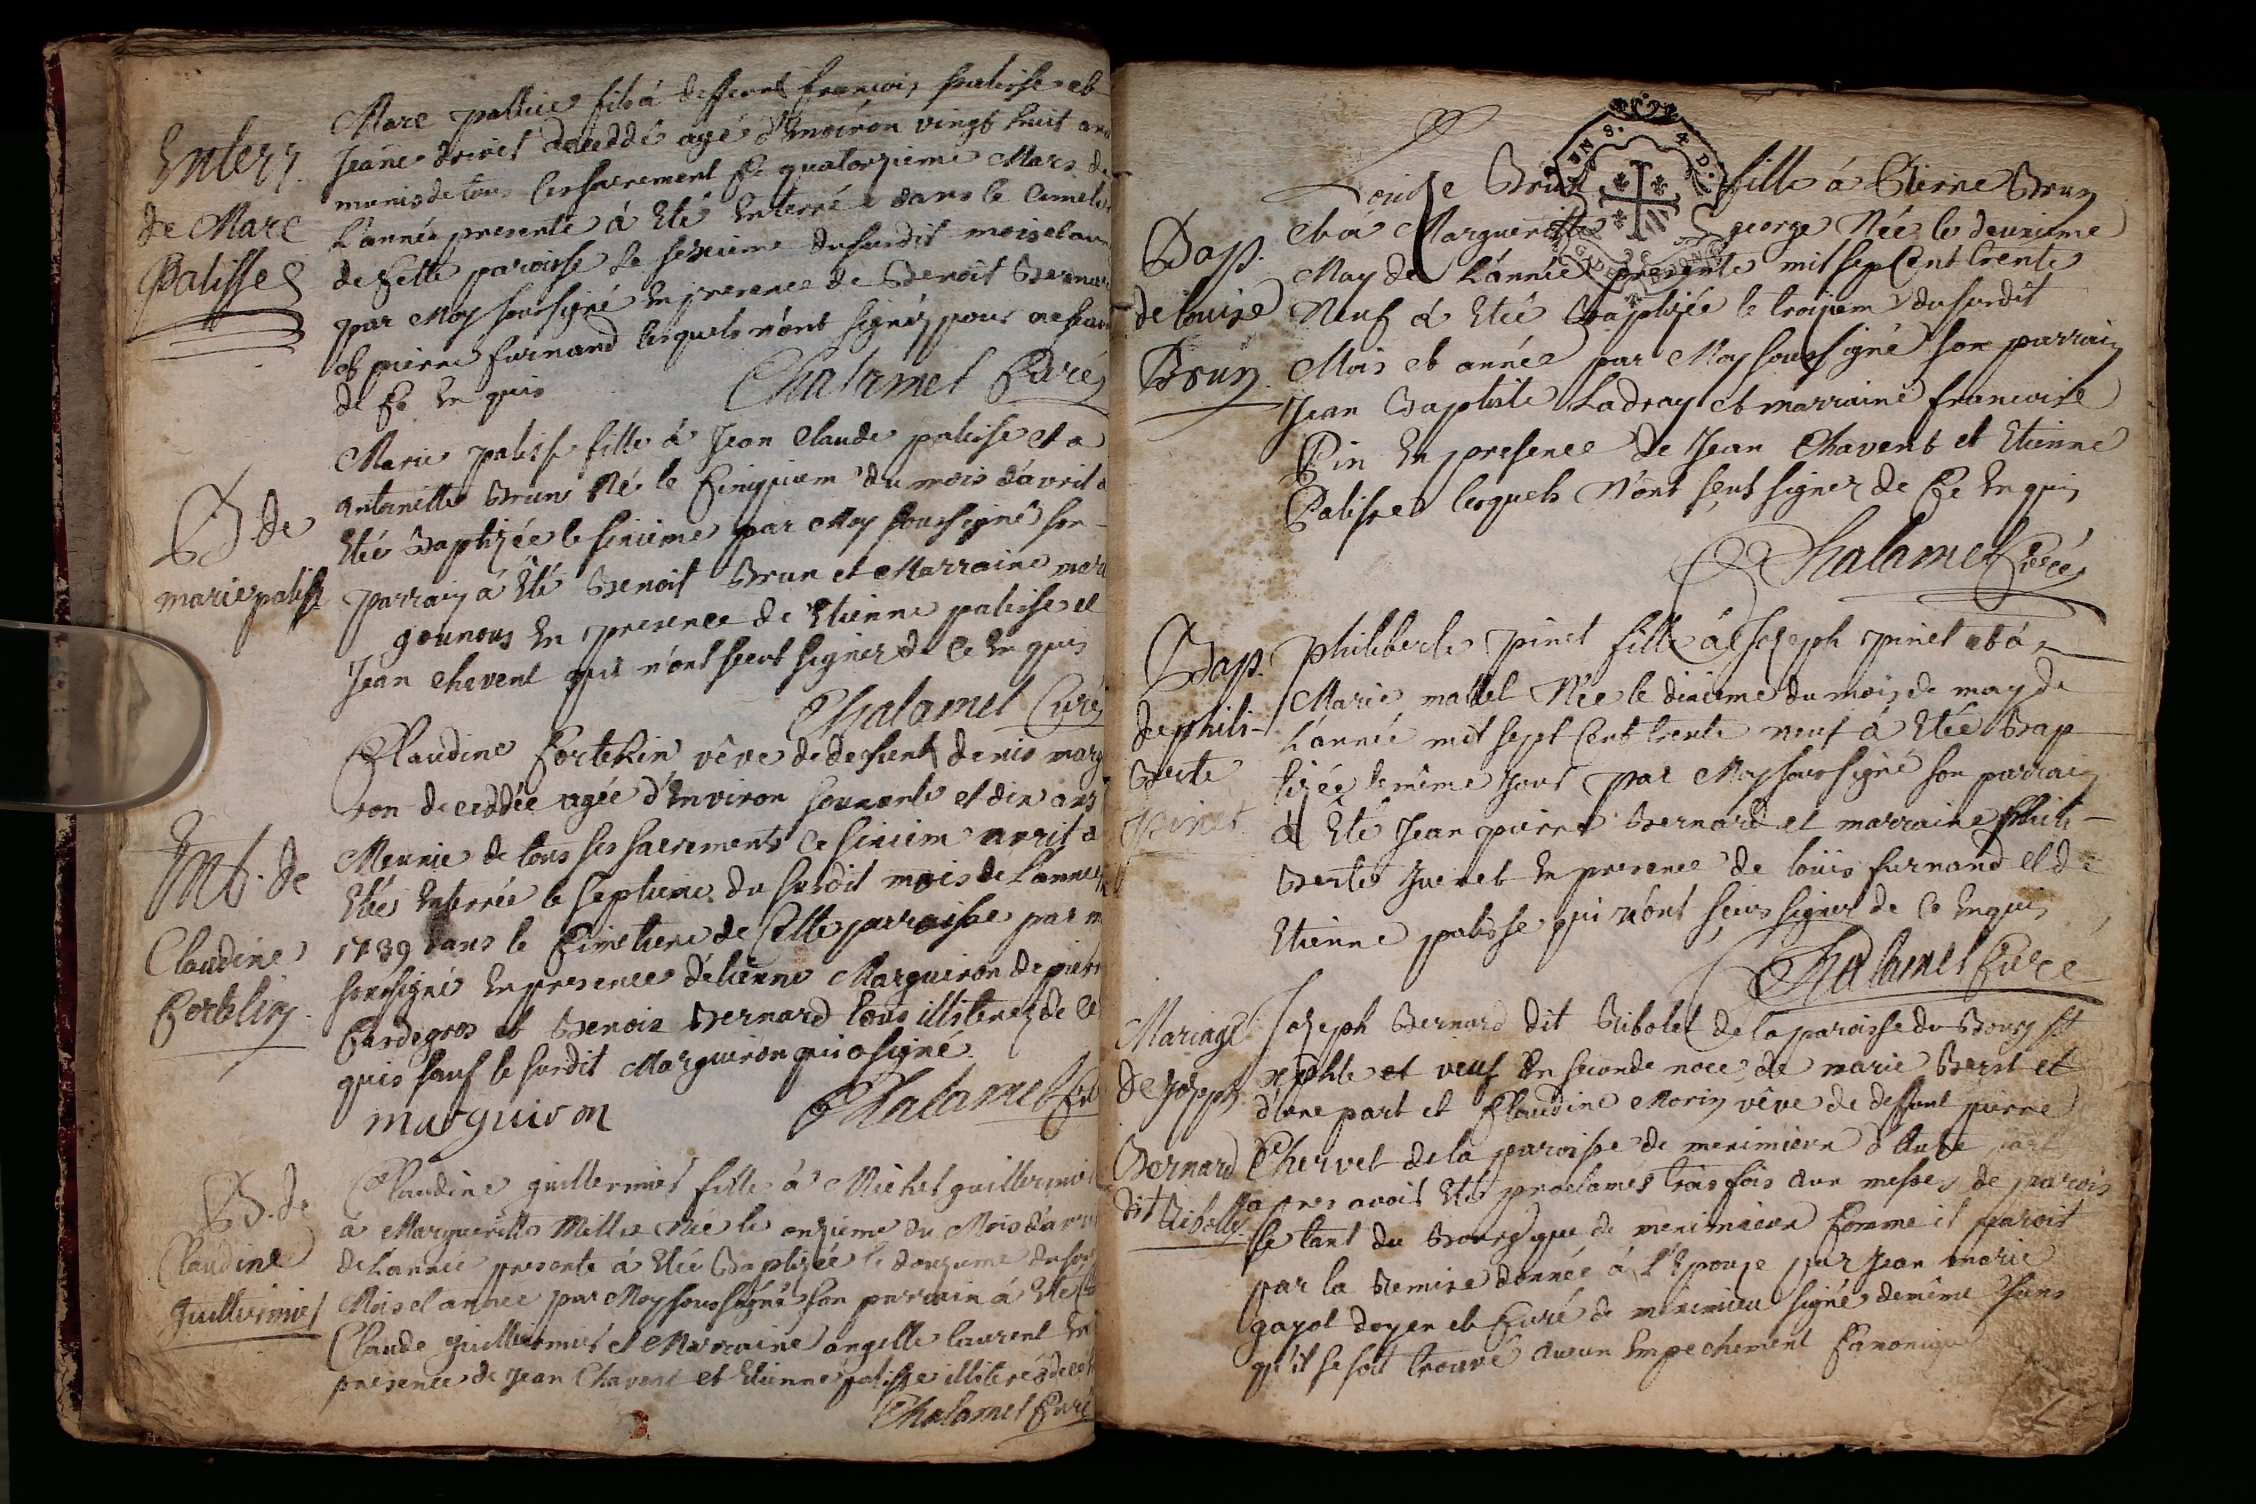 Enterr.
de Marc
Palisse
Marc pallice fils à deffunt francois palisse et
Jeane drivet décéddé agé d'environ vingt huit ans
munis de tous les sacrement ce quatorzieme Mars de
L'année presente à Eté Enterré dans le Cimetie
de Cette paroisse le seizieme du susdit mois et an
par Moy soussigné En presence de Benoit Bernar
et pierre furnand lesquels n'ont signéz pour ne scav
de Ce En quis
Chalamel Curé
B de
marie palisse
Marie palisse fille à Jean Claude palisse et a
antoinette Brun Né le Cinquiem du mois d'avril a
Eté Baptizée le sixieme par Moy soussigné son
parrain à Eté Benoit Brun et Marraine mar
gounous En presence de Etienne palisse et
Jean chavent qui n'ont sceut signer de Ce En quis
Chalamel Curé
Ent. de
Claudine
Cortelin
Claudine Cortelin vêve de deffunt denis marg
ron deceddée agée d'Environ soixante et dix ans
Meunie de tous ses sacrements ce sixiem avril a
Etée Enterrée le septieme du susdit mois de L'année
1739 dans le Cimetiere de Cette parroisse par m
soussigné En presence d'etienne Marguiron de pierre
Cardegros et Benois Bernard tous illiterez de Ce
quis sauf le susdit Marguiron qui a signé
marguiron
Chalamel Cu
B. de
Claudine
Guillermet
Claudine guillermet fille à Michel guillermet
à Margueritte Millet Née le onzieme du Mois d'avr
de L'année presente à Etée Baptizée le douzieme du sus
Mois et année par Moy soussigné son parrain à Eté
Claude guillermet et Marraine angelle laurent En
presence de Jean Chavent et Etienne palisse illiterés de ce
Chalamel Curé
Bap.
de louise
Brun
Louise Brun fille à Pierre Brun
et à Margueritte george Née le deuxieme
May de L'année presente mil sept Cent trente
Neuf à Etée Baptizée le troizieme du susdit
Mois et année par Moy soussigné son parrain
Jean Baptiste Ladray et marraine francoise
Pin En presence de Jean Chavent et Etienne
Palisse lesquels N'ont sceut signer de Ce En quis
Chalamel Curé
Bap.
de phili-
berte
pinet
Philiberte pinet fille à Joseph pinet et à
Marie mallet Née le dixieme du mois de may de
L'année mil sept Cent trente neuf à Etée Bap
tizée le même jour par Moy soussigné son parrain
à Eté Jean pierre Bernard et marraine Phili-
berte juenet En presence de loüis furnand et de
Etienne palisse qui n'ont sceus signer de Ce En quis
Chalamel Curé
Mariage
de Joseph
Bernard
dit Ribollet
Joseph Bernard dit Ribolet de la paroisse du Bourg st
xphle et veuf En seconde noce de marie Berst et
d'une part et Claudine Morin vêve de deffunt pierre
Chervet de la paroisse de meximieux d'Autre part
apres avoir Etés proclames trois fois aux messes de parois
se tant du Bourg que de meximieux Comme il paroit
par la Remise donnée à L'Epouse par Jean marie
gayot doyen et Curé de meximieu signé de même sans
qu'il se soit trouvé aucun Empechement Canonique